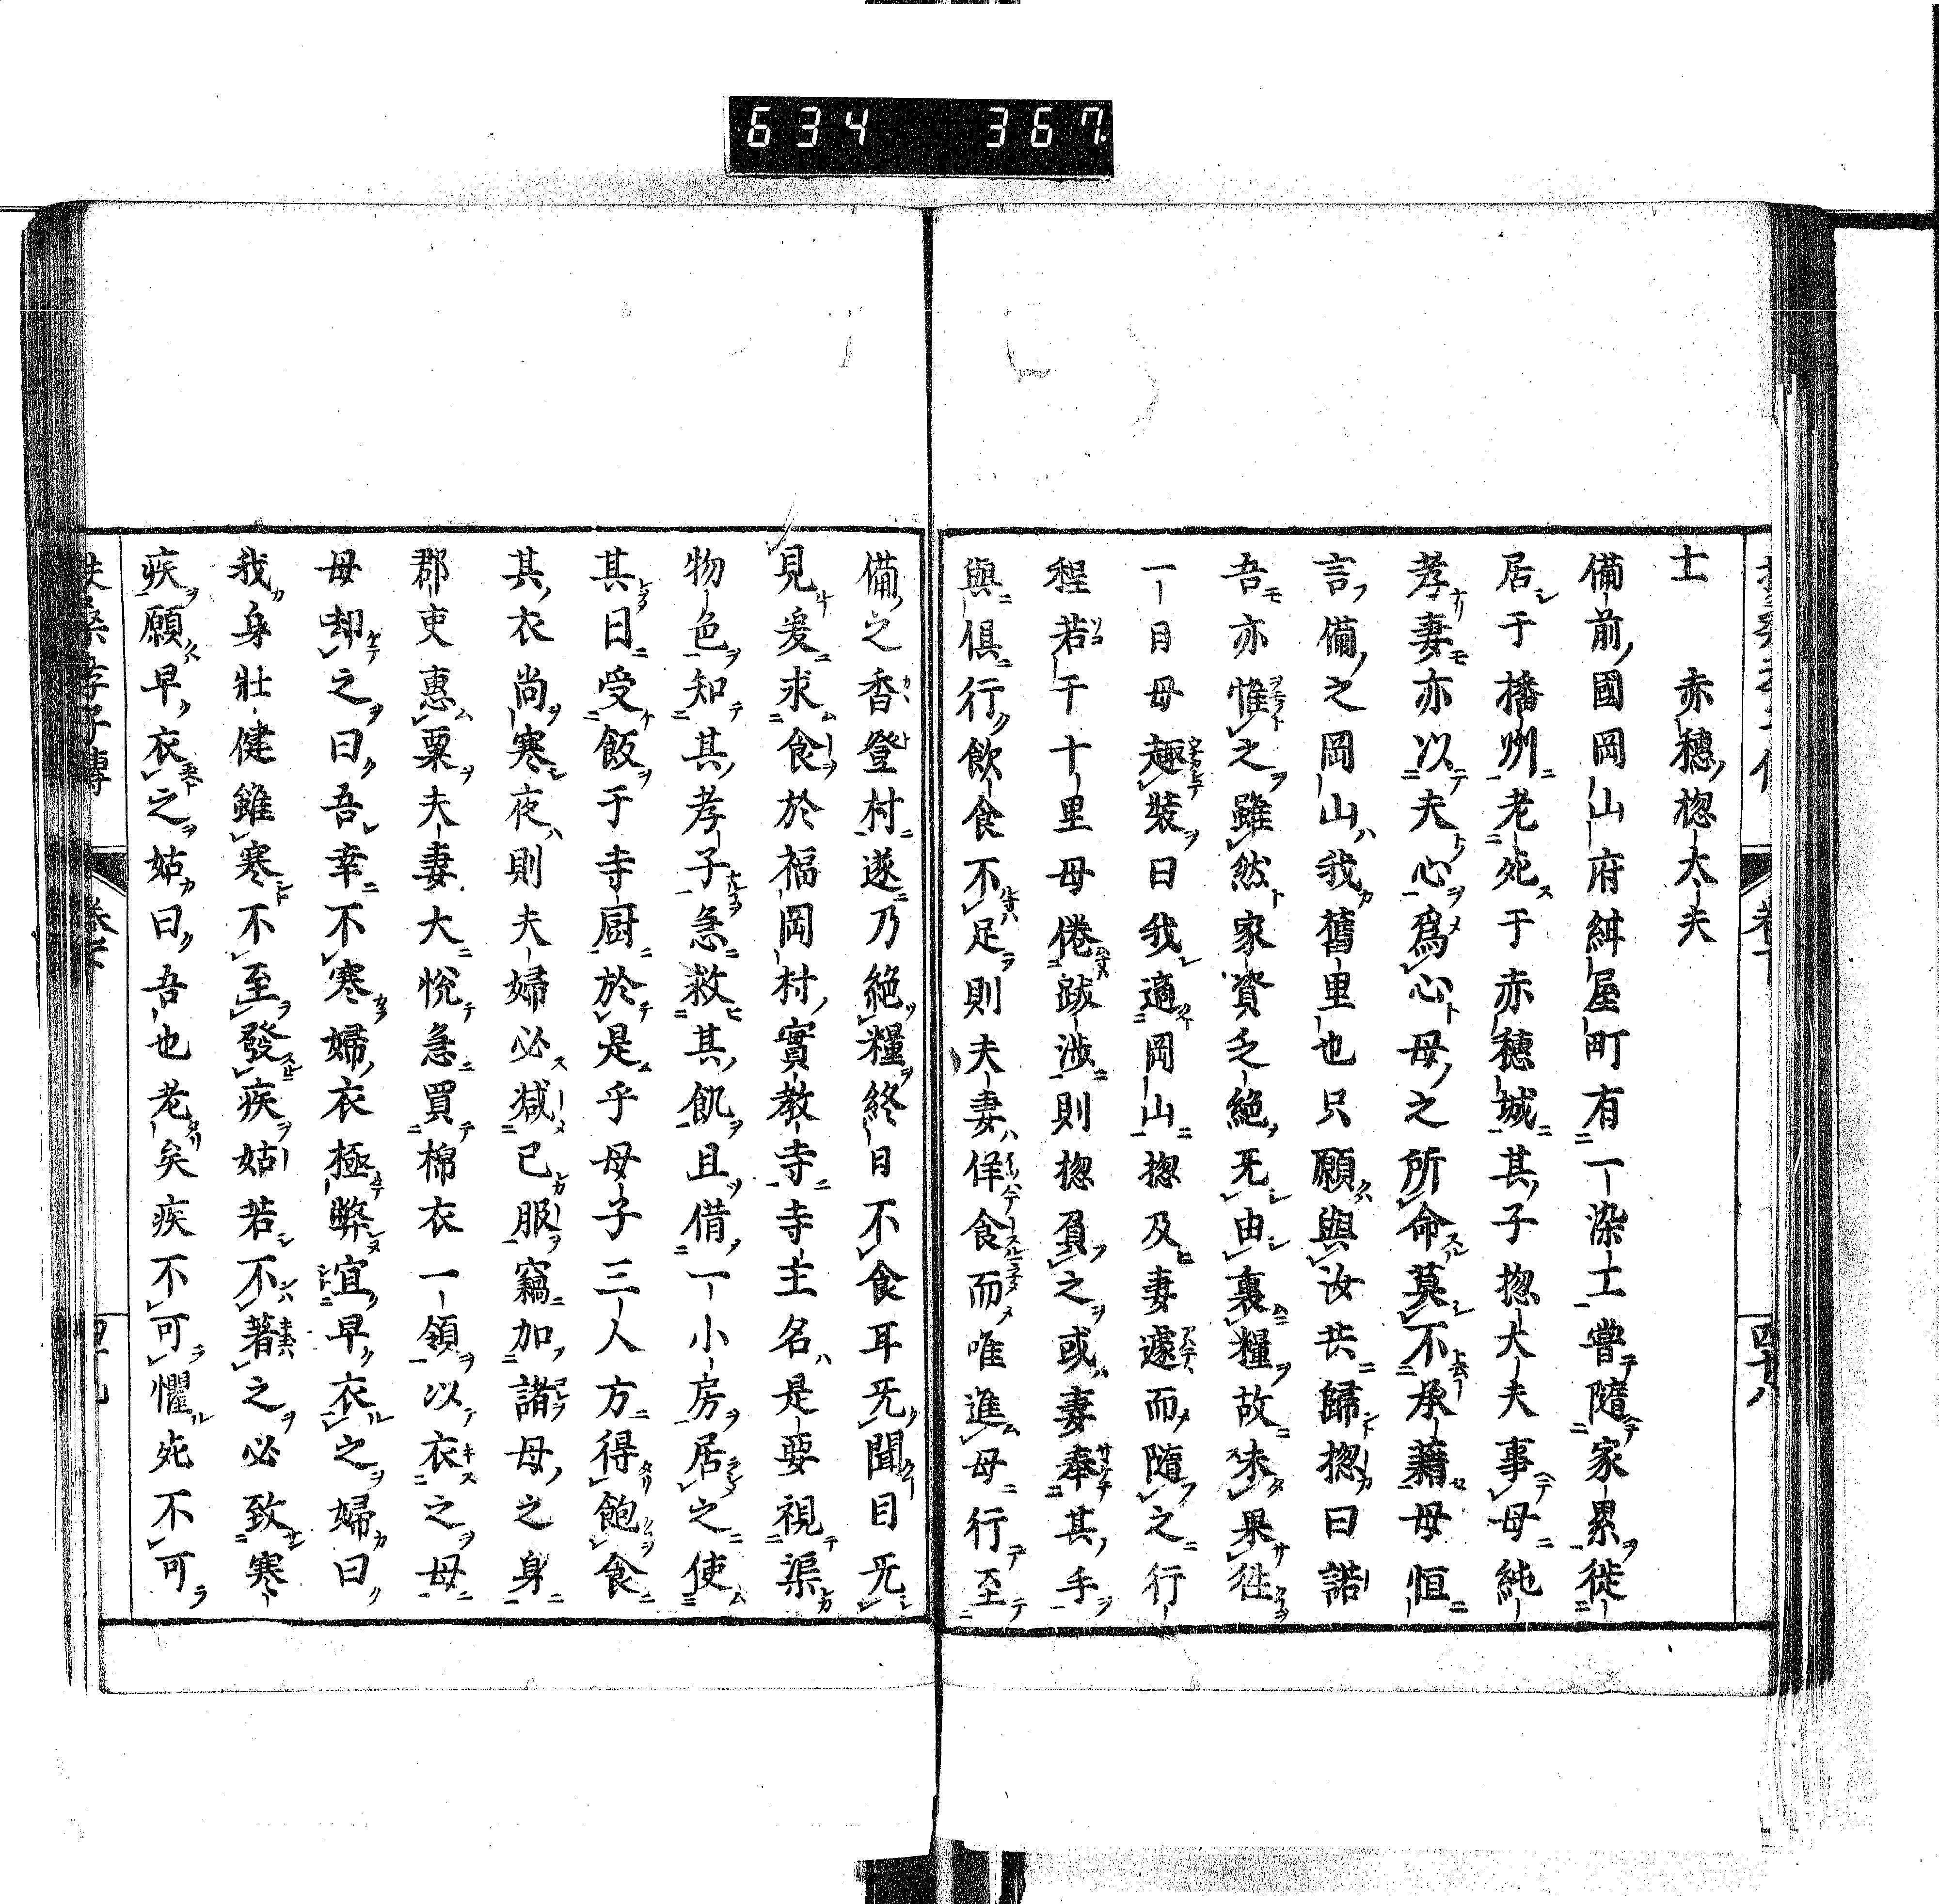 634 367
士　赤穗惣大夫
備前國岡山府紺屋町有一染士嘗隨家累徙
居于播州老死于赤穗城其子惣大夫事母純
孝妻亦以夫心爲心母之所命莫不承藉母恒
言備之岡山我舊里也只願與汝共歸惣曰諾
吾亦惟之雖然家資乏絶无由裏糧故未果徃
一日母趣裝曰我適岡山惣及妻遽而隨之行
程若干十里母倦跋涉則惣負之或妻奉其手
與俱行飲食不足則夫妻佯食而唯進母行至
備之香登村遂乃絶糧終日不食耳无聞目无
見爰求食於福岡村實教寺寺主名是要視渠
物色知其孝子急救其飢且借一小房居之使
其日受飯于寺厨於是乎母子三人方得飽食
其衣尚寒夜則夫婦必减己服竊加諸母之身
郡吏惠粟夫妻大悅急買棉衣一領以衣之母
母却之曰吾幸不寒婦衣極弊宜早衣之婦曰
我身壯健雖寒不至發疾姑若不著之必致寒
疾願早衣之姑曰吾也老矣疾不可懼死不可
扶桑孝子傳